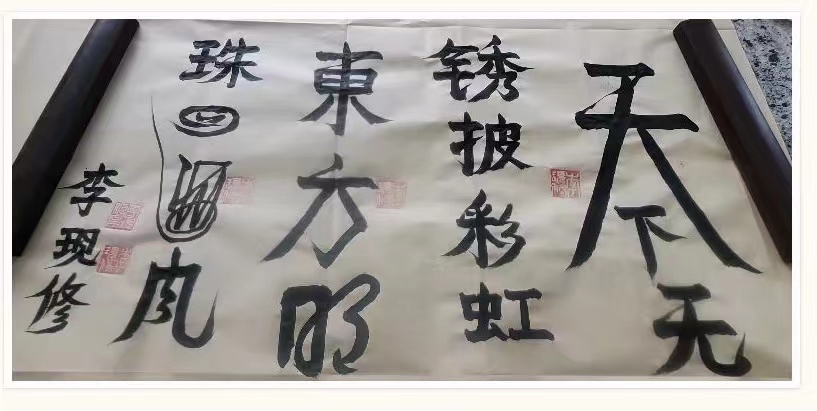 天下无
锈披彩虹
東方明
珠
李现修